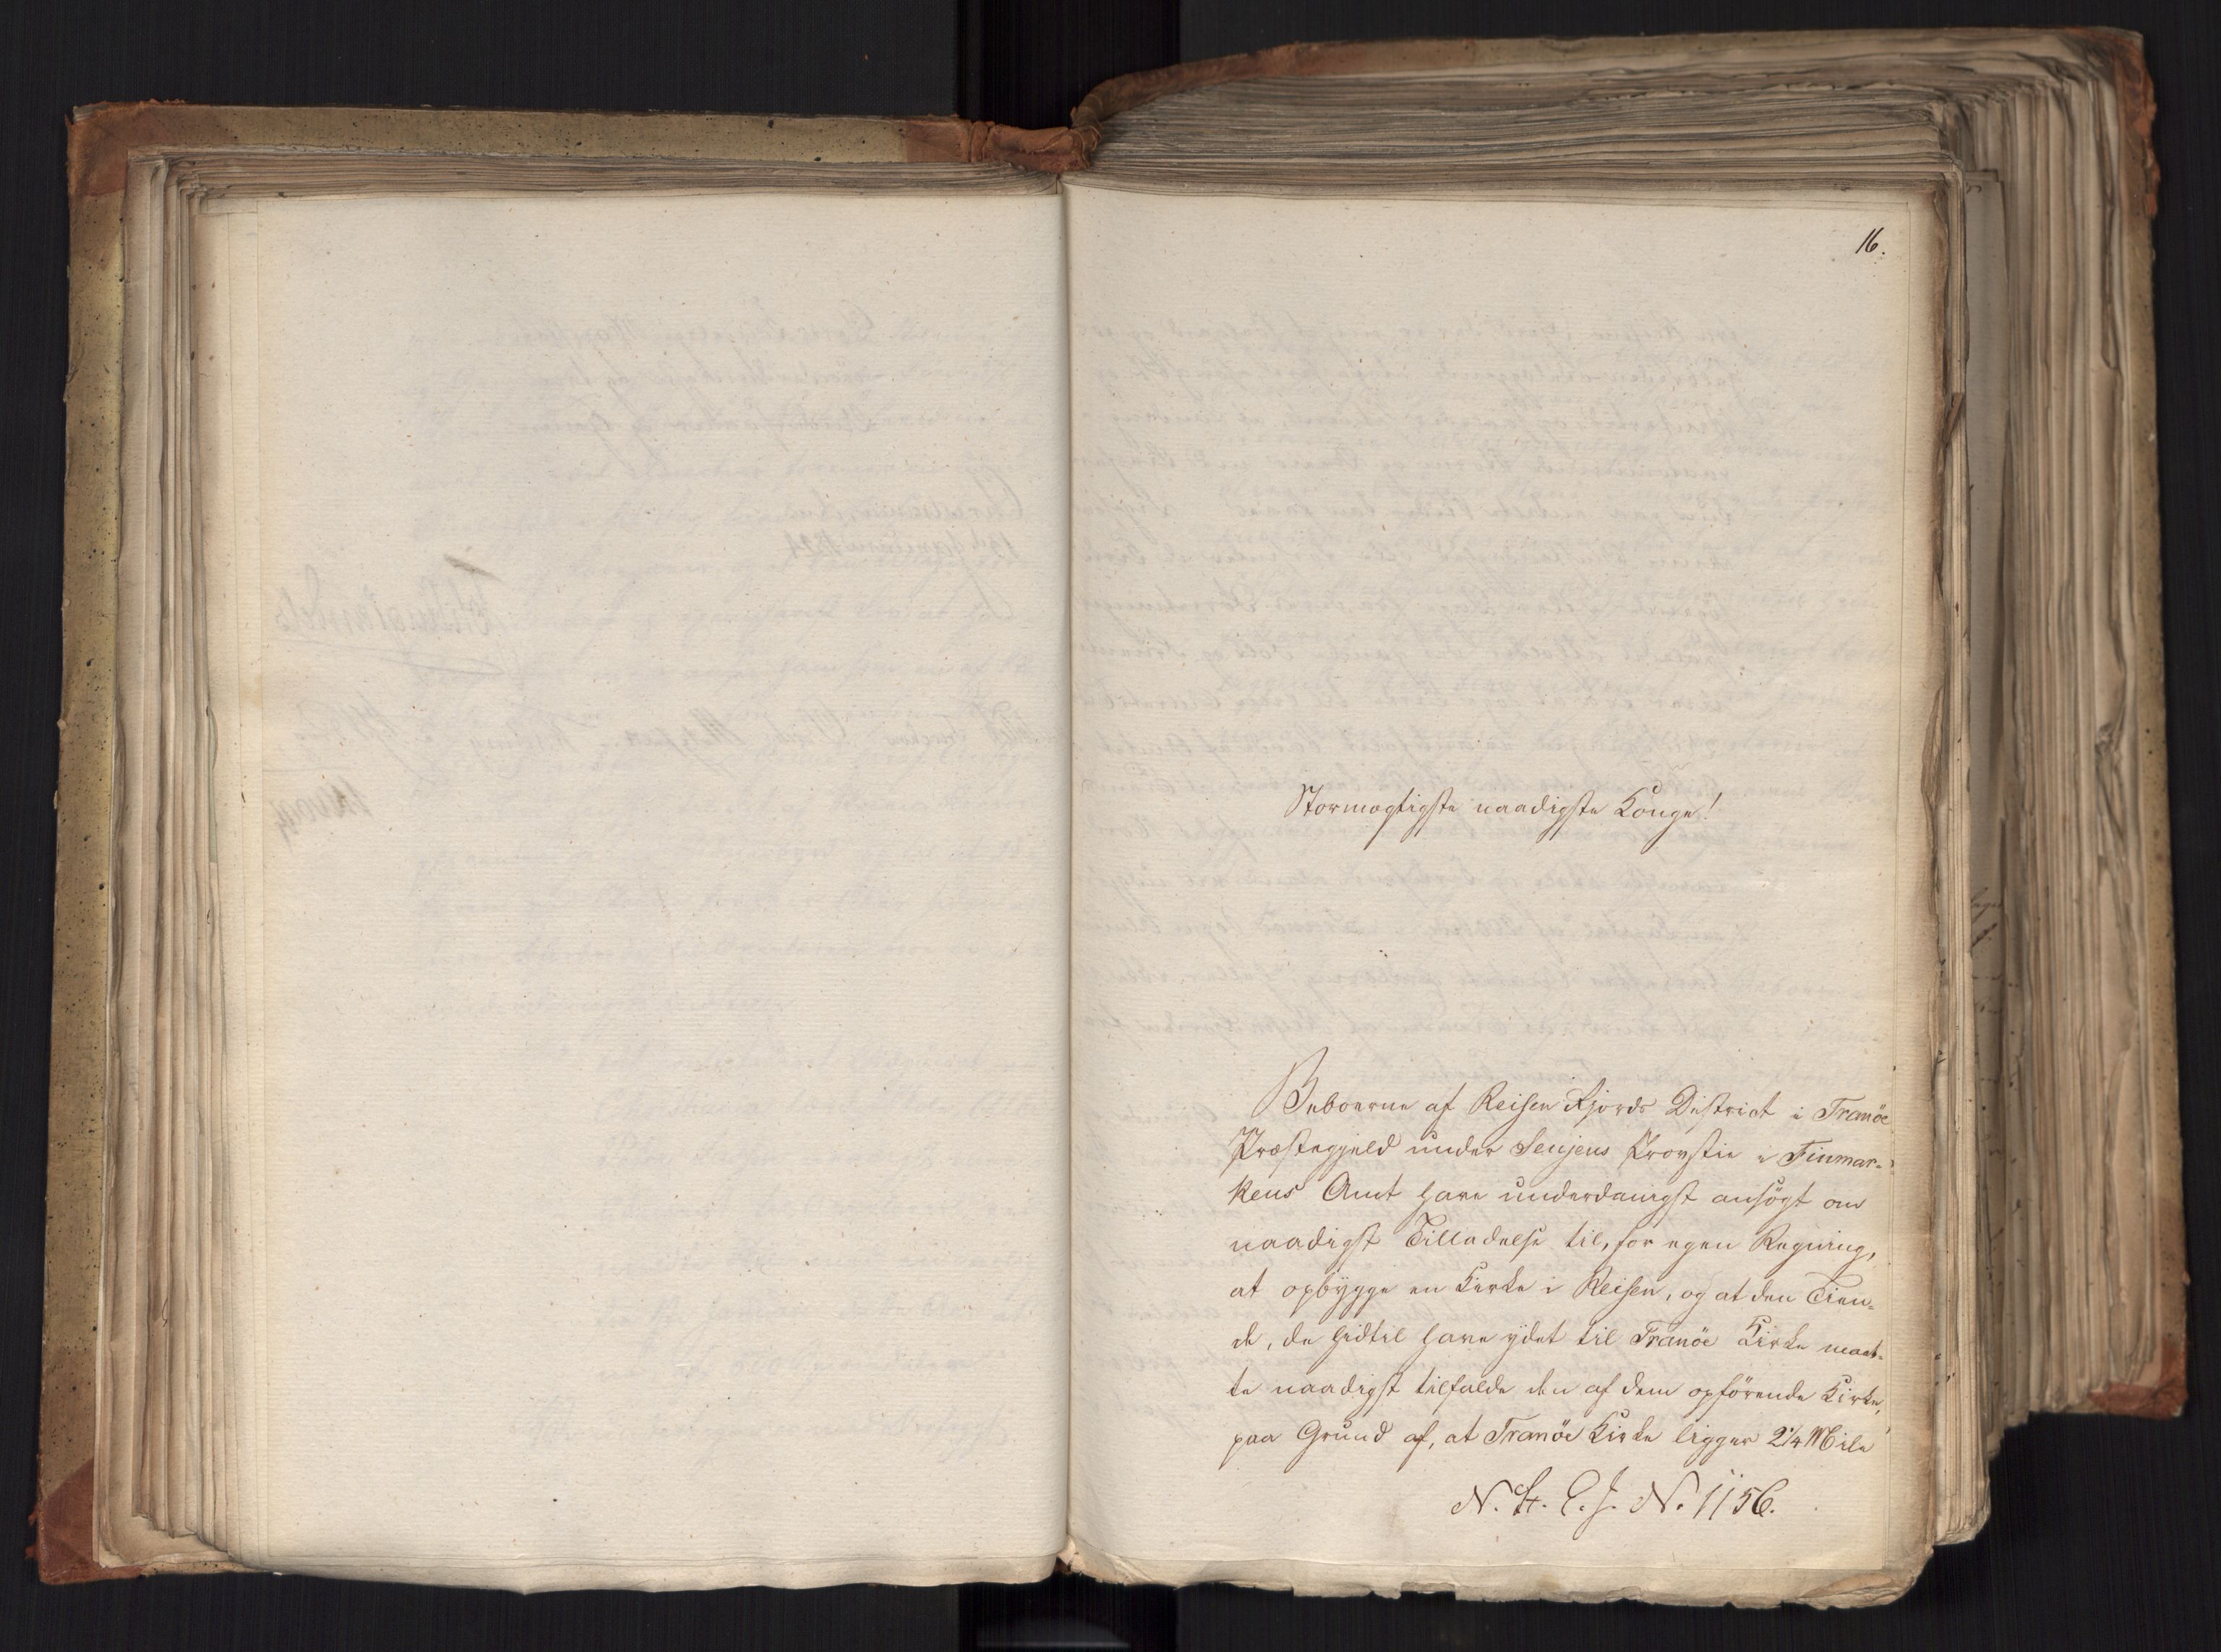 16.
Stormægtigste naadigste Konge!
Beboerne af Reisen Fjords District i Tranöe
Præstegjeld under Senjens Provstie i Finmar-
kens Amt have underdanigst ansögt om
naadigst Tilladelse til, for egen Regning,
at opbygge en Kirke i Reisen, og at den Tien-
de, de hidtil have ydet til Tranöe Kirke maat-
te naadigst tilfalde den af dem opförende Kirke,
paa Grund af, at Tranöe Kirke ligger 2 1/4 Mile
N. 1156.